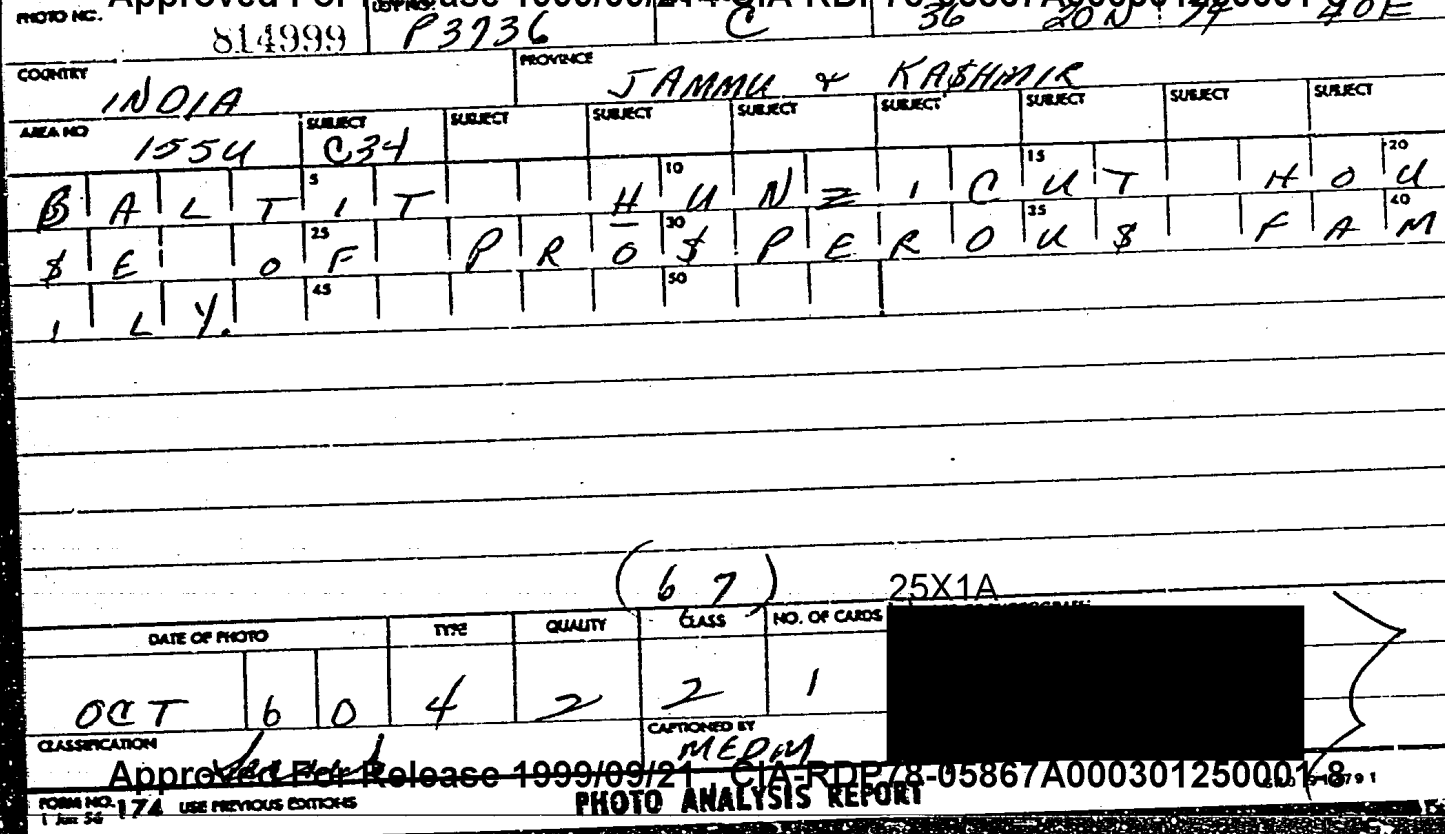 Approved For Release 1999/09/21 : CIA-RDP78-05867A000301250001-8
PHOTO NO. 814999 P3736 C 36 20N 74 40E
COUNTRY INDIA PROVINCE JAMMU & KA$HMIR
AREA NO 155U SUBJECT C34 SUBJECT SUBJECT SUBJECT SUBJECT SUBJECT SUBJECT SUBJECT
BALTIT HUNZICUT HOU
5 10 15 20
$E OF PRO$PEROU$ FAM
25 30 35 40
ILY.
45 50
(67) 25X1A
DATE OF PHOTO TYPE QUALITY CLASS NO. OF CARDS
OCT 60 4 2 2 1
CLASSIFICATION CAPTIONED BY MEDM
Approved For Release 1999/09/21 : CIA-RDP78-05867A000301250001-8
FORM NO. 174 USE PREVIOUS EDITIONS PHOTO ANALYSIS REPORT
1 Jun 56